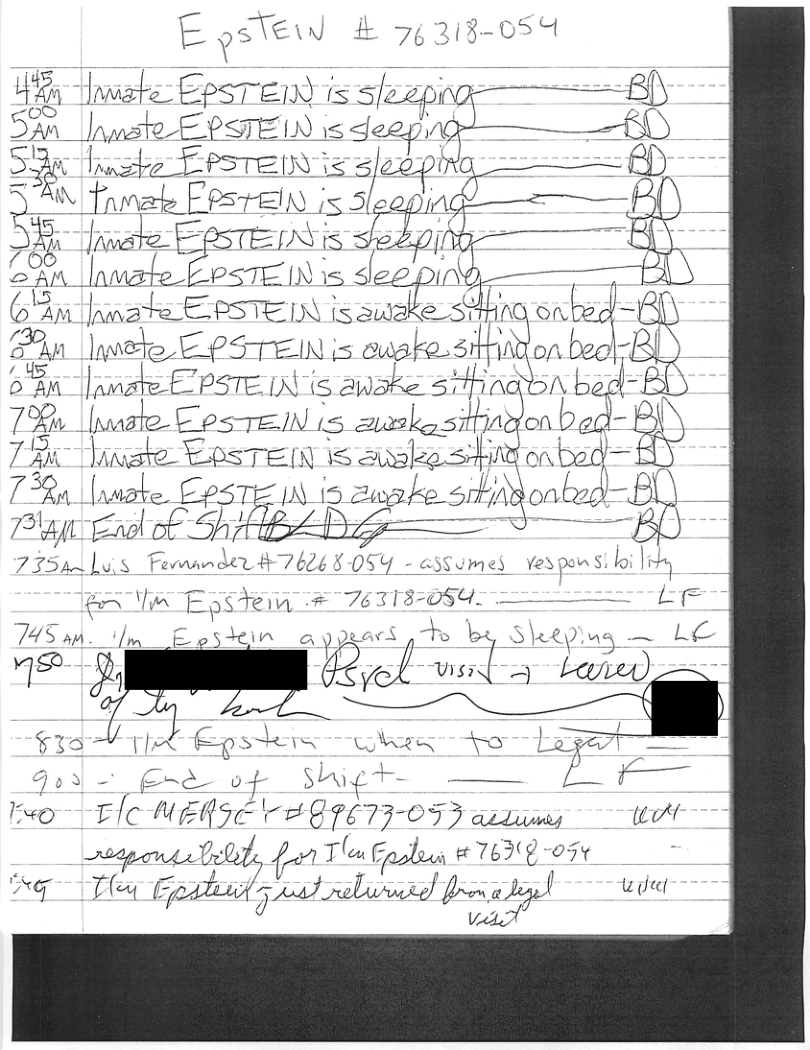 EpSTEIN # 76318-054
4 45 AM Inmate EPSTEIN is sleeping BD
5 00 AM Inmate EPSTEIN is sleeping BD
5 15 AM Inmate EPSTEIN is sleeping BD
5 30 AM Inmate EPSTEIN is sleeping BD
5 45 AM Inmate EPSTEIN is sleeping BD
6 00 AM Inmate EPSTEIN is sleeping BD
6 15 AM Inmate EPSTEIN is awake sitting on bed - BD
6 30 AM Inmate EPSTEIN is awake sitting on bed - BD
6 45 AM Inmate EPSTEIN is awake sitting on bed - BD
7 00 AM Inmate EPSTEIN is awake sitting on bed - BD
7 15 AM Inmate EPSTEIN is awake sitting on bed - BD
7 30 AM Inmate EPSTEIN is awake sitting on bed - BD
7 31 AM End of Shift BD
735 Am Luis Fernandez # 76268-054 - assumes responsibility
for I/m Epstein # 76318-054. LF
745 AM. I/m Epstein appears to be sleeping - LF
750 Psych visit
830 - I/m Epstein when to Legal
900 - End of shift - LF
I/C MERSEY # 89673-053 assumes
responsibility for I/m Epstein # 76318-054
I/m Epstein just returned from a legal
visit